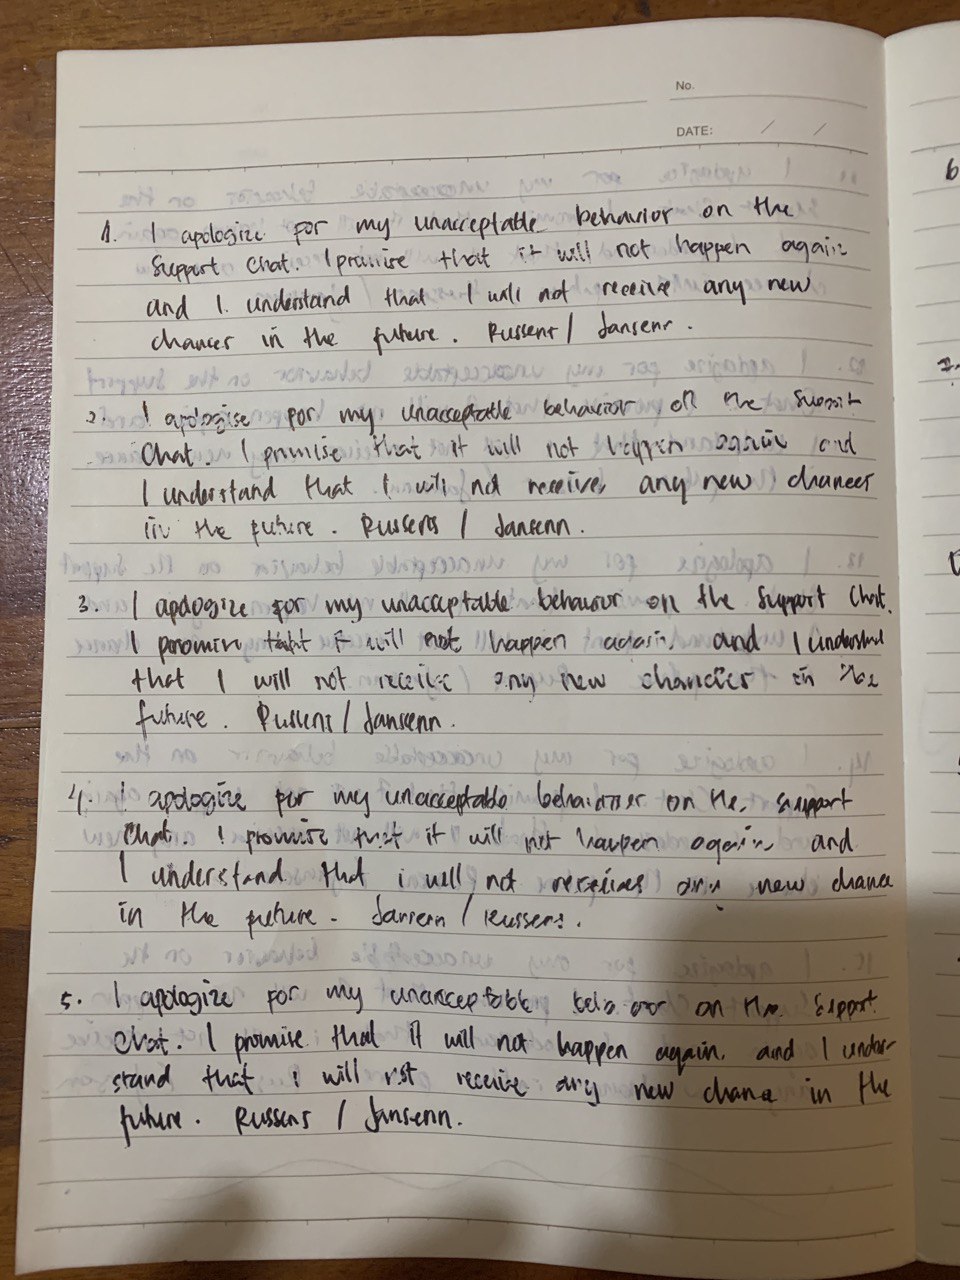 No.
DATE: / /
1. I apologize for my unacceptable behavior on the
Support Chat. I promise that it will not happen again
and I understand that I will not receive any new
chances in the future. Russens / Jansenn.
2. I apologise for my unacceptable behavior on the Support
Chat. I promise that it will not happen again and
I understand that I will not receive any new chances
in the future. Russens / Jansenn.
3. I apologize for my unacceptable behaviour on the Support Chat.
I promise that it will not happen again and I understand
that I will not receive any new in the
future. Russens / Jansenn.
4. I apologize for my unacceptable on the support
Chat. I promise that it will not happen again and
I understand that i will not any new chance
in the future. Jansenn / Russens.
5. I apologize for my unacceptable on the support
Chat. I promise that it will not happen again and I under-
stand that i will not receive any new chance in the
future. Russens / Jansenn.
6